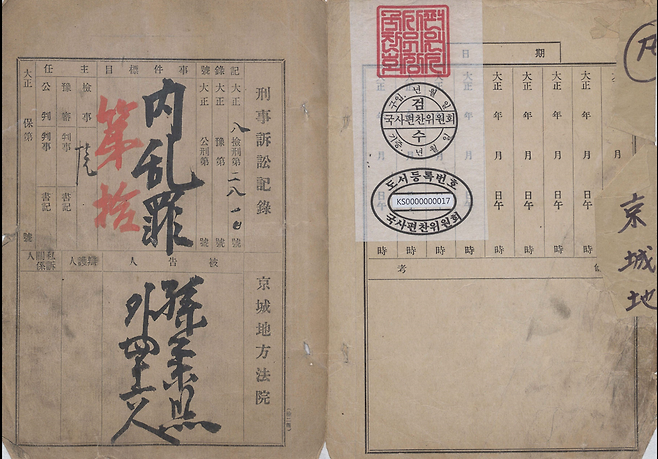 刑事訴訟記錄
京城地方法院
記錄號
大正 八 檢刑第 號
大正 豫第 號
大正 公刑第 號
事件標目
內乱罪
第拾
主任
檢事
豫審判事
公判判事
書記
書記
大正 保第 號
被告人
孫秉熙
外四十六人
辯護人
私訴關係人
期日
大正 年 月 日午 時
大正 年 月 日午 時
大正 年 月 日午 時
大正 年 月 日午 時
大正 年 月 日午 時
大正 年 月 日
備考
구입 년 월 일
검
국사편찬위원회
수
기증 년 월 일
도서등록번호
KS0000000017
국사편찬위원회
京城地